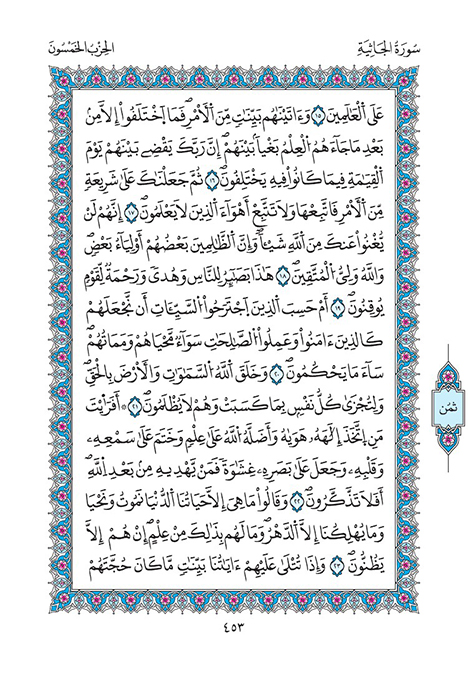 سُورَةُ الْجَاثِيَةِ
الحِزْبُ الْخَمْسُونَ
عَلَى الْعَٰلَمِينَ ١٥ وَءَاتَيْنَٰهُم بَيِّنَٰتٍ مِّنَ الْأَمْرِ فَمَا اَخْتَلَفُواْ إِلَّا مِنۢ
بَعْدِ مَا جَآءَهُمُ الْعِلْمُ بَغْياَۢ بَيْنَهُمْ إِنَّ رَبَّكَ يَقْضِے بَيْنَهُمْ يَوْمَ
الْقِيَٰمَةِ فِيمَا كَانُواْ فِيهِ يَخْتَلِفُونَ ١٦ ثُمَّ جَعَلْنَٰكَ عَلَىٰ شَرِيعَةٍ
مِّنَ الْأَمْرِ فَاتَّبِعْهَا وَلَا تَتَّبِعَ اَهْوَآءَ الذِينَ لَا يَعْلَمُونَ ١٧ إِنَّهُمْ لَنْ
يُّغْنُواْ عَنكَ مِنَ اَللَّهِ شَيْـٔاً وَإِنَّ الظَّٰلِمِينَ بَعْضُهُمُۥٓ أَوْلِيَآءُ بَعْضٍ
وَاللَّهُ وَلِيُّ الْمُتَّقِينَ ١٨ هَٰذَا بَصَٰٓئِرُ لِلنَّاسِ وَهُدىٗ وَرَحْمَةٌ لِّقَوْمٍ
يُوقِنُونَ ١٩ أَمْ حَسِبَ الذِينَ اَجْتَرَحُواْ السَّيِّـَٔاتِ أَن نَّجْعَلَهُمْ
كَالذِينَ ءَامَنُواْ وَعَمِلُواْ الصَّٰلِحَٰتِ سَوَآءٌ مَّحْيَاهُمْ وَمَمَاتُهُمْ
سَآءَ مَا يَحْكُمُونَ ٢٠ وَخَلَقَ اَللَّهُ السَّمَٰوَٰتِ وَالْأَرْضَ بِالْحَقِّ
وَلِتُجْزَىٰ كُلُّ نَفْسٍۢ بِمَا كَسَبَتْ وَهُمْ لَا يُظْلَمُونَ ٢١ ۞ أَفَرَٰٓيْتَ
مَنِ اِتَّخَذَ إِلَٰهَهُۥ هَوَيٰهُ وَأَضَلَّهُ اللَّهُ عَلَىٰ عِلْمٍ وَخَتَمَ عَلَىٰ سَمْعِهِۦ
وَقَلْبِهِۦ وَجَعَلَ عَلَىٰ بَصَرِهِۦ غِشَٰوَةٗ فَمَنْ يَّهْدِيهِ مِنۢ بَعْدِ اِللَّهِ
أَفَلَا تَذَّكَّرُونَ ٢٢ وَقَالُواْ مَا هِيَ إِلَّا حَيَاتُنَا الدُّنْيَا نَمُوتُ وَنَحْيَا
وَمَا يُهْلِكُنَآ إِلَّا الدَّهْرُ وَمَا لَهُم بِذَٰلِكَ مِنْ عِلْمٍ إِنْ هُمُۥٓ إِلَّا
يَظُنُّونَ ٢٣ وَإِذَا تُتْلَىٰ عَلَيْهِمُۥٓ ءَايَٰتُنَا بَيِّنَٰتٍ مَّا كَانَ حُجَّتَهُمُۥٓ
ثُمُن
٤٥٣